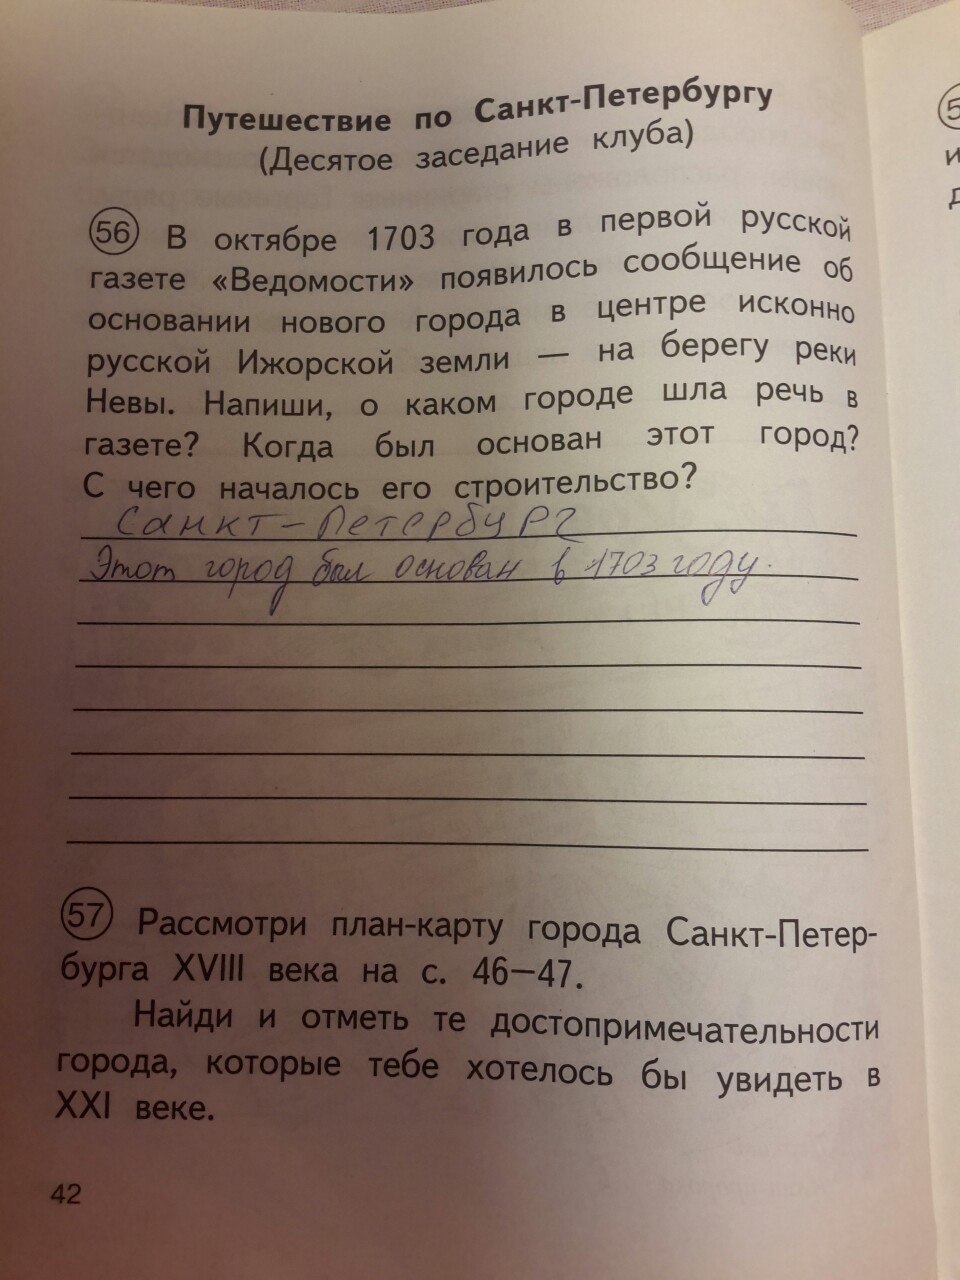 Путешествие по Санкт-Петербургу
(Десятое заседание клуба)
56 В октябре 1703 года в первой русской
газете «Ведомости» появилось сообщение об
основании нового города в центре исконно
русской Ижорской земли — на берегу реки
Невы. Напиши, о каком городе шла речь в
газете? Когда был основан этот город?
С чего началось его строительство?
Санкт-Петербург
Этот город был основан в 1703 году.
57 Рассмотри план-карту города Санкт-Петер-
бурга XVIII века на с. 46—47.
Найди и отметь те достопримечательности
города, которые тебе хотелось бы увидеть в
XXI веке.
42